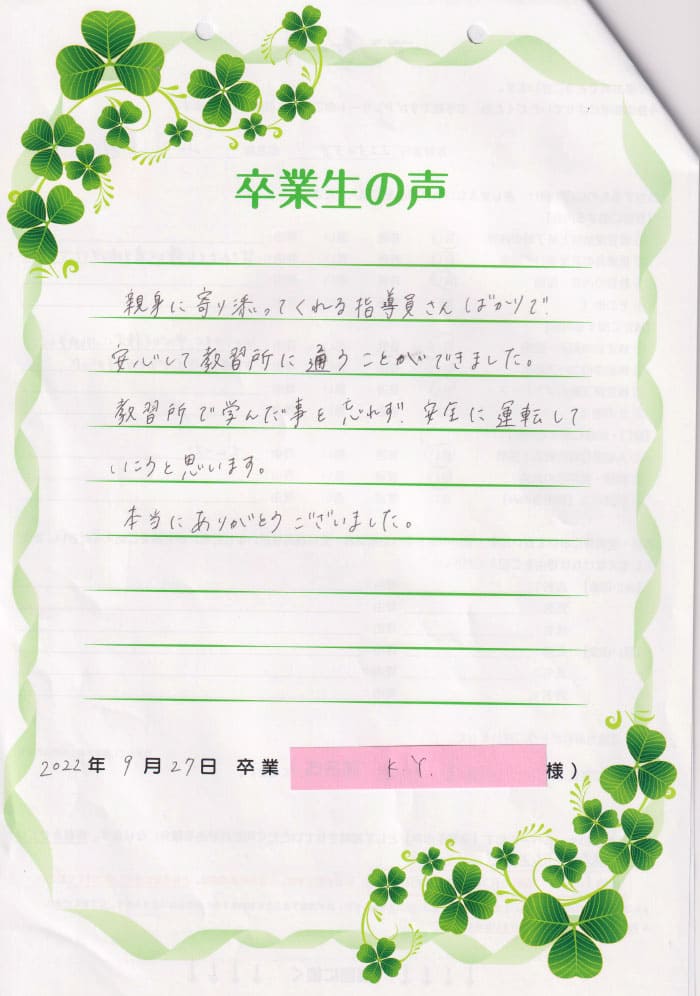 卒業生の声
親身に寄り添ってくれる指導員さんばかりで、
安心して教習所に通うことができました。
教習所で学んだ事を忘れず、安全に運転して
いこうと思います。
本当にありがとうございました。
2022年 9月27日 卒業 K Y. 様）